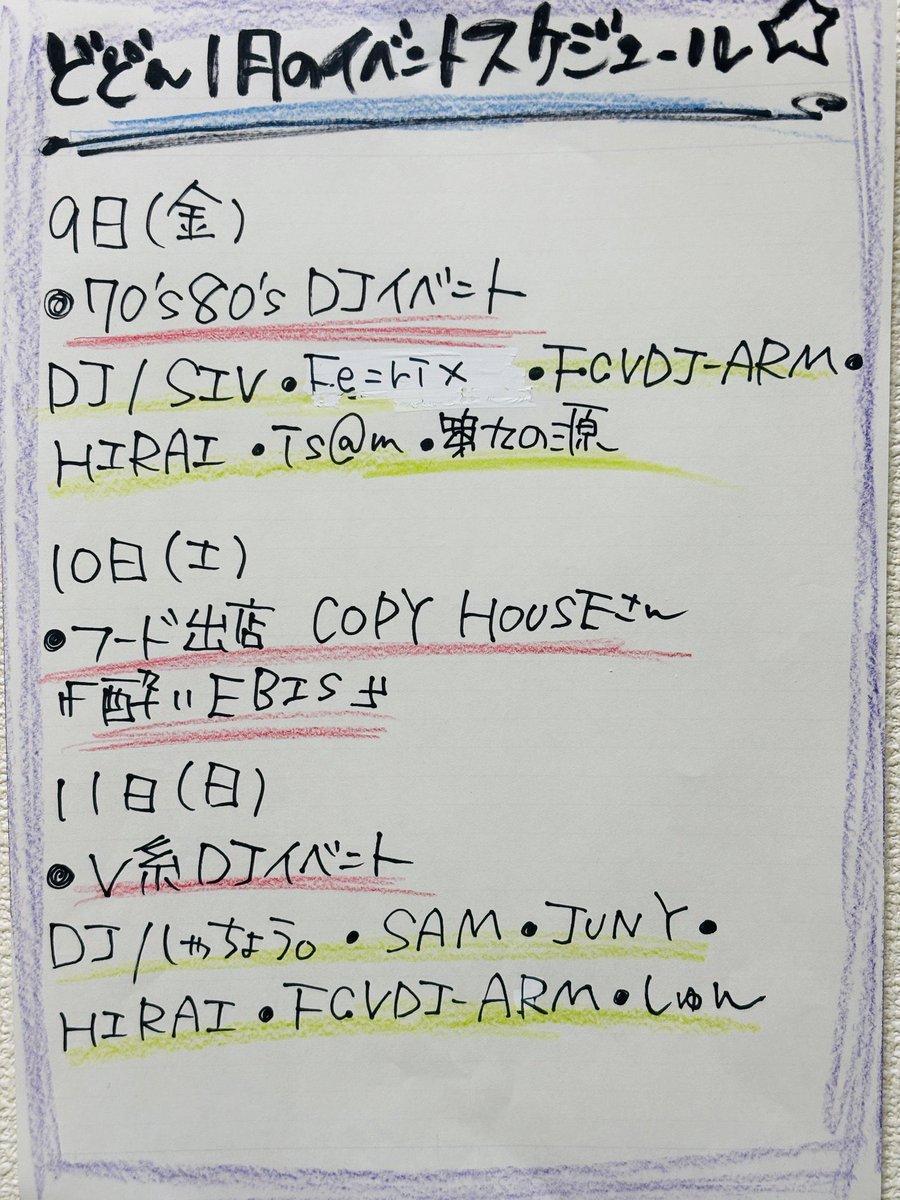 どどん1月のイベントスケジュール☆
9日(金)
◎70's80's DJイベント
DJ/SIV・Fe=rix・F.CVDJ-ARM・
HIRAI・Ts@m・の源
10日(土)
●フード出店 COPY HOUSEさん
酔い EBIS
11日(日)
●V系DJイベント
DJ/しゃちょう。・SAM・JUNY・
HIRAI・F.CVDJ-ARM・しゅん